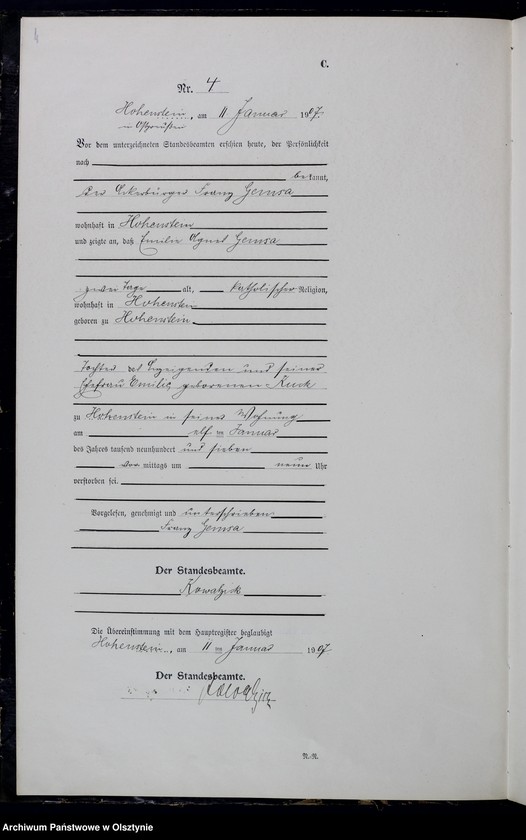 C.
Nr. 4
Hohenstein, am 11 Januar 1907.
in Ostpreußen
Vor dem unterzeichneten Standesbeamten erschien heute, der Persönlichkeit
nach
bekannt,
der Ackerbürger Franz Gemsa
wohnhaft in Hohenstein
und zeigte an, daß Emilie Agnes Gemsa
zwei Tage alt, katholischer Religion,
wohnhaft in Hohenstein
geboren zu Hohenstein
Tochter des Anzeigenden und seiner
Ehefrau Emilie geborenen Kuck
zu Hohenstein in seiner Wohnung
am elften Januar
des Jahres tausend neunhundert und sieben
vormittags um neun Uhr
verstorben sei.
Vorgelesen, genehmigt und unterschrieben
Franz Gemsa
Der Standesbeamte.
Kowalzick
Die Übereinstimmung mit dem Hauptregister beglaubigt
Hohenstein, am 11ten Januar 1907
Der Standesbeamte.
Kowalzick
N.-R.
Archiwum Państwowe w Olsztynie